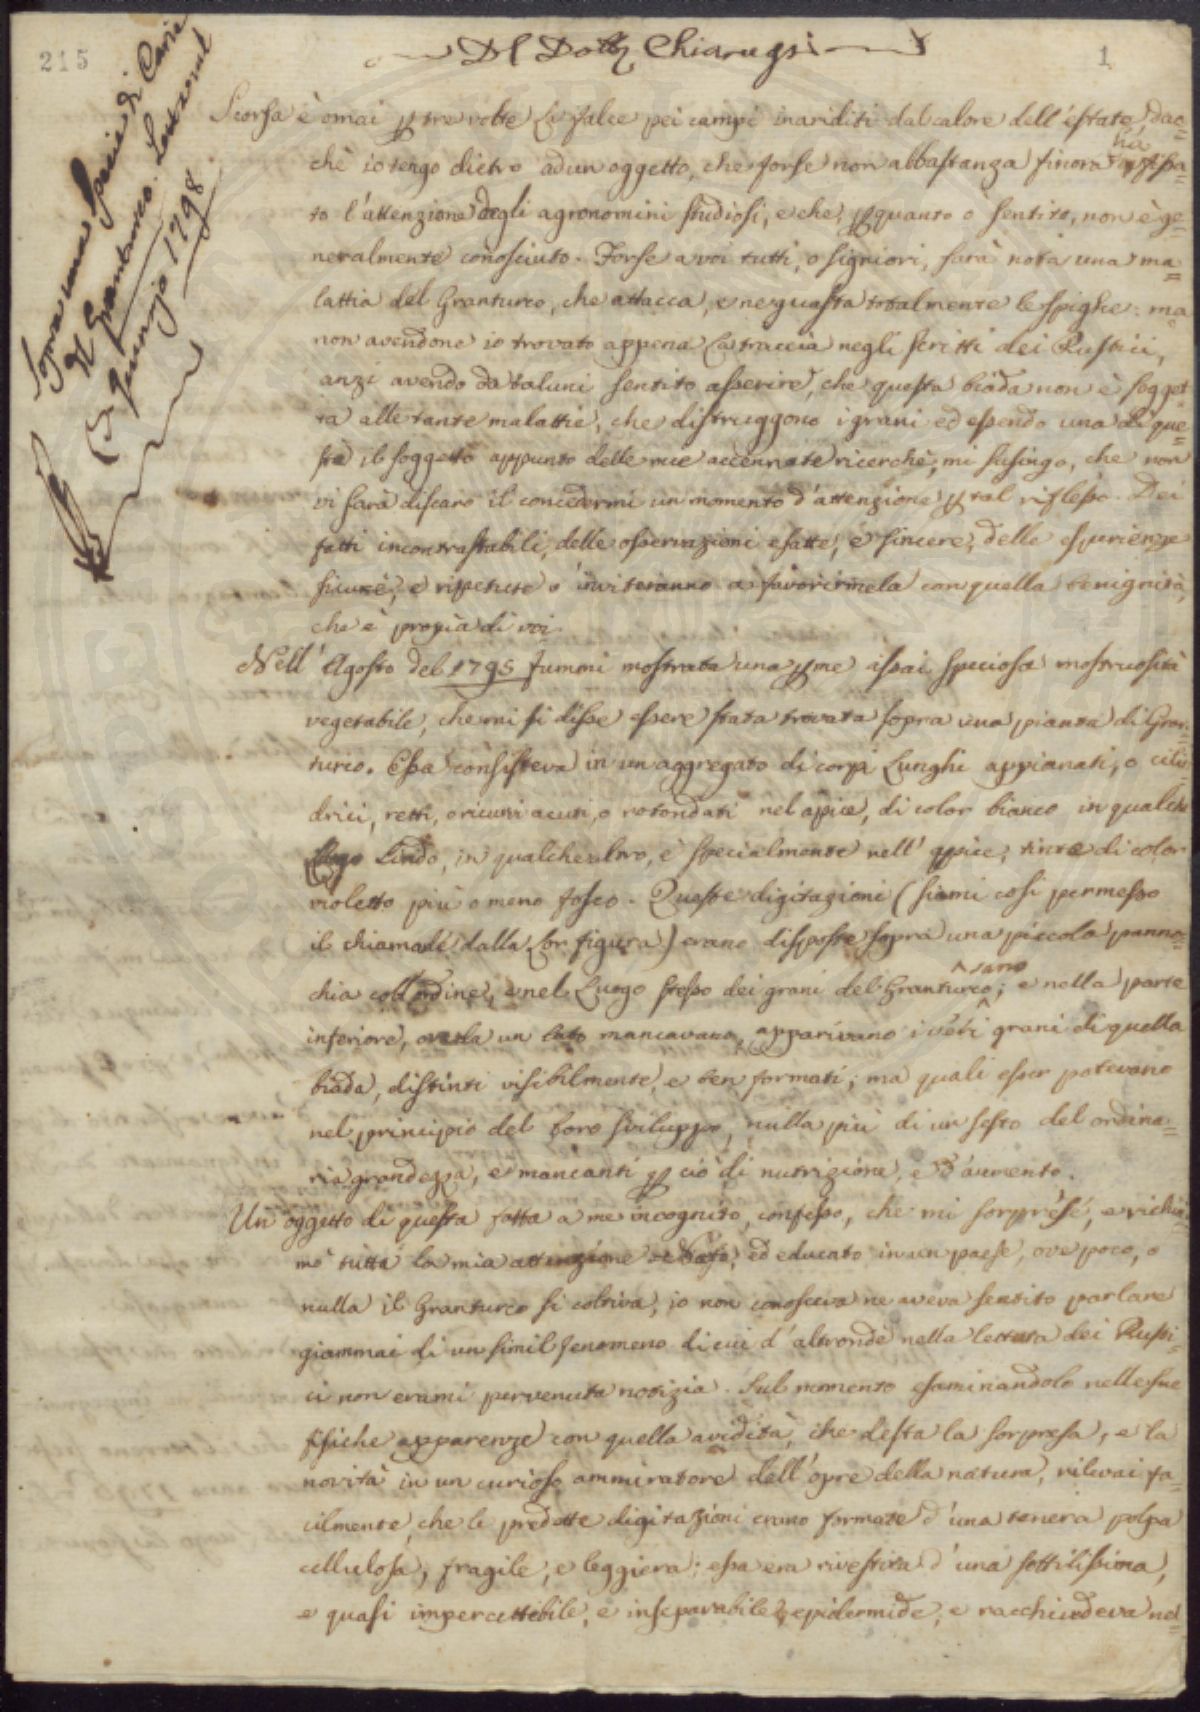 215
1
Del Dott. Chiarugi
Sopra una specie di Carie
del Granturco. Lett. a dì
6 Giugno 1798
Scorsa è omai p tre volte la falce pei campi inariditi dal calore dell'estate, dac=
chè io tengo dietro ad un oggetto, che forse non abbastanza finora hà fissa=
to l'attenzione degli agronomini studiosi, e che, p quanto ò sentito, non è ge=
neralmente conosciuto. Forse a voi tutti, o signiori, sarà nota una ma=
lattia del Granturco, che attacca, e ne guasta totalmente le spighe: ma
non avendone io trovato appena la traccia negli scritti dei Rustici,
anzi avendo da taluni sentito asserire, che questa biada non è sogget=
ta alle tante malattie, che distruggono i grani ed essendo una di que=
ste il soggetto appunto delle mie accennate ricerche, mi lusingo, che non
vi sarà discaro il concedermi un momento d'attenzione p tal riflesso. Dei
fatti incontrastabili, delle osservazioni esatte, e sincere, delle esperienze
sicure, e ripetute v'inviteranno a favorirmela con quella benignità,
che è propia di voi.
Nell'Agosto del 1795 fummi mostrata una p me assai speciosa mostruosità
vegetabile, che mi si disse essere stata trovata sopra una pianta di Gran=
turco. Essa consisteva in un aggregato di corpi lunghi appianati, o cilin=
drici, retti, o ricurvi acuti, o rotondati nel apice, di color bianco in qualche
lindo, in qualche altro, e specialmente nell'appice, tinte di color
violetto più o meno fosco. Queste digitazioni (siami così permesso
il chiamarle dalla lor figura) erano disposte sopra una piccola panno=
chia coll'ordine, e nel luogo stesso dei grani del Granturco; e nella parte
sano
inferiore, ove da un lato mancavano, apparivano i veri grani di quella
biada, distinti visibilmente, e ben formati; ma quali esser potevano
nel principio del loro sviluppo, nulla più di un sesto del ordina=
ria grandezza, e mancanti p ciò di nutrizione, e d'aumento.
Un oggetto di questa fatta a me incognito, confesso, che mi sorprese, e richia=
mò tutta la mia attenzione. Nato, ed educato in un paese, ove poco, o
nulla il Granturco si coltiva, io non conosceva ne aveva sentito parlare
giammai di un simil fenomeno di cui d'altronde nella lettura dei Rusti=
ci non erami pervenuta notizia. Sul momento esaminandolo nelle sue
fisiche apparenze con quella avidità, che desta la sorpresa, e la
novità in un curioso ammiratore dell'opre della natura, rilevai fa=
cilmente, che le predette digitazioni erano formate d'una tenera polpa
cellulosa, fragile, e leggiera; essa era rivestita d'una sottilissima,
e quasi impercettibile, e inseparabile epidermide, e racchiudeva nel=